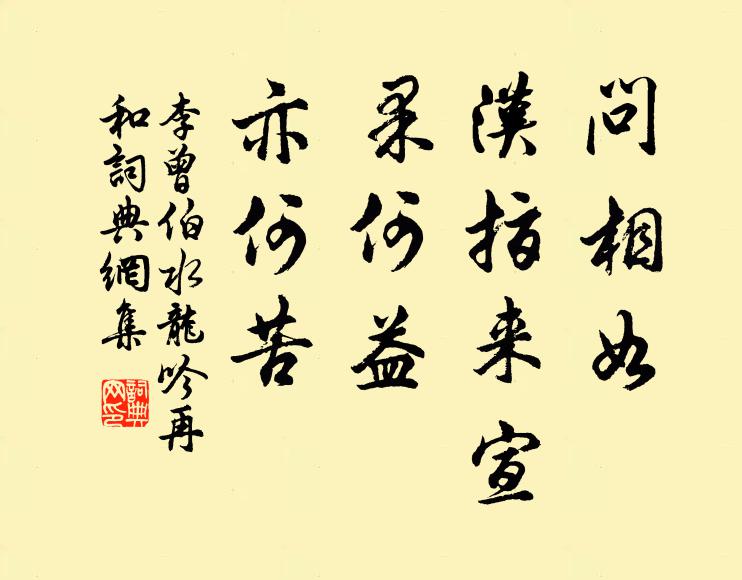 問相如
漢指来宣
果何益
亦何苦
李曾伯水龍吟再
和詞典網集
詞典
网印